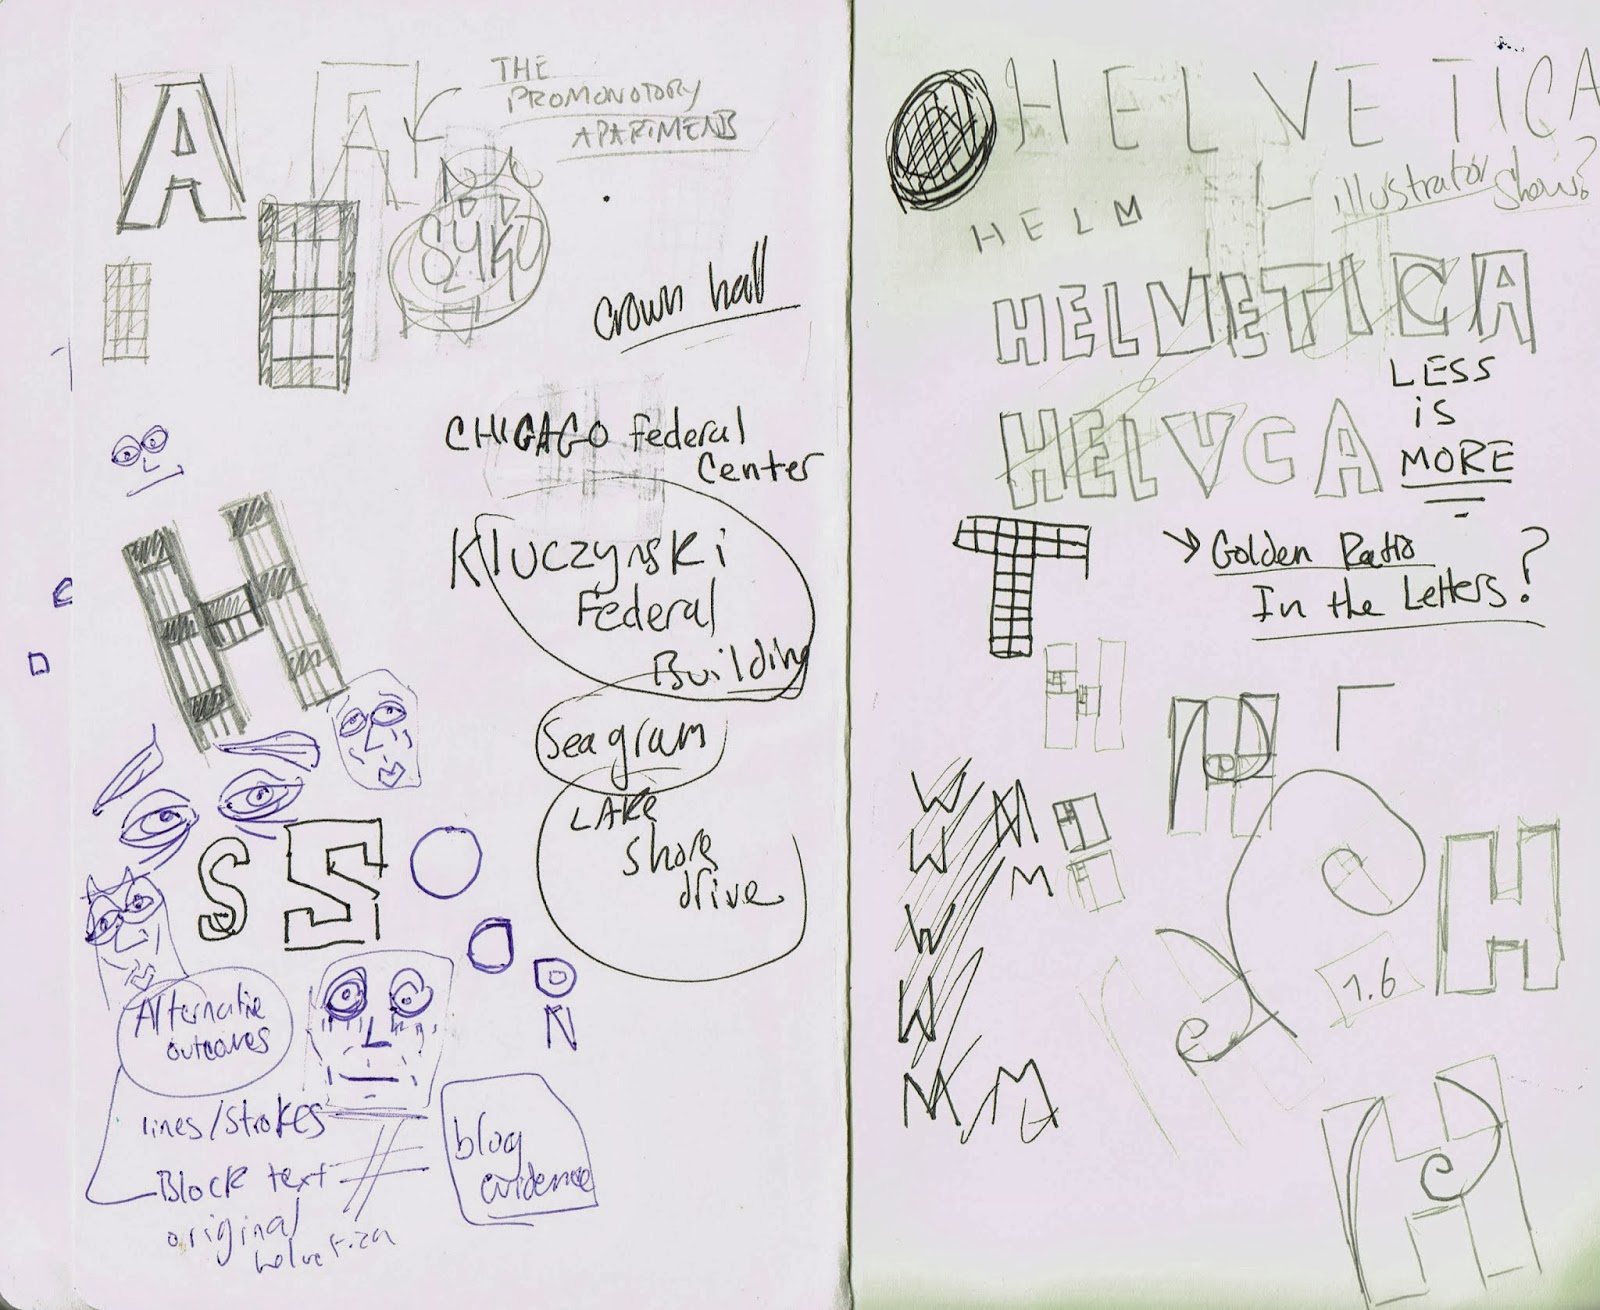 A
A
THE
PROMONOTORY
APARTMENTS
H
crown hall
CHICAGO Federal
Center
Kluczynski
Federal
Building
H
Seagram
LAKE
Shore
drive
S S
Alternative
outcomes
N
lines/strokes
Block text
original
helvetica
blog
evidence
HELVETICA
illustrator show?
HELM
HELVETICA
LESS
is
MORE
HELVCA
T
→ Golden Ratio
In the Letters?
H
H
W
W
W
W
M
M
M
M
H
1.6
H
H